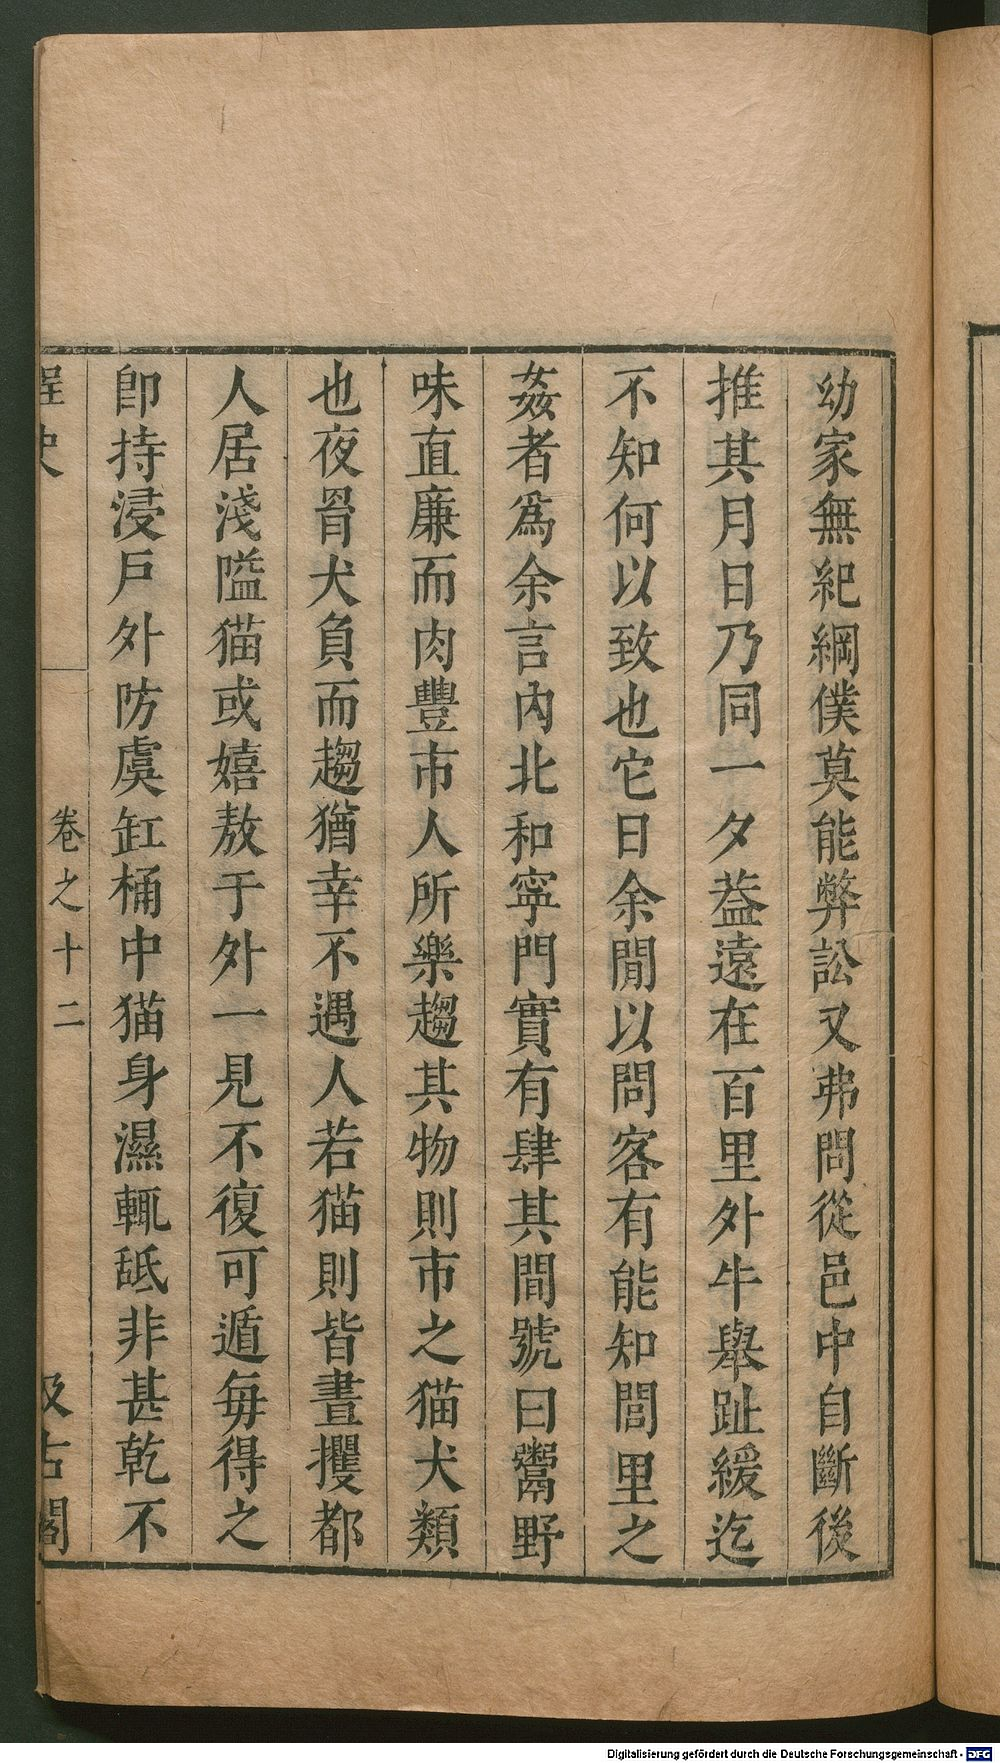 幼家無紀綱僕莫能弊訟又弗問從邑中自斷後
推其月日乃同一夕葢遠在百里外牛舉趾緩迄
不知何以致也它日余閒以問客有能知閭里之
姦者爲余言內北和寧門實有肆其間號曰鬻野
味直廉而肉豐市人所樂趨其物則市之猫犬類
也夜罥犬負而趨猶幸不遇人若猫則皆晝攫都
人居淺隘猫或嬉敖于外一見不復可遁每得之
卽持浸戶外防虞缸桶中猫身濕輒舐非甚乾不
桯史
卷之十二
汲古閣
Digitalisierung gefördert durch die Deutsche Forschungsgemeinschaft - DFG